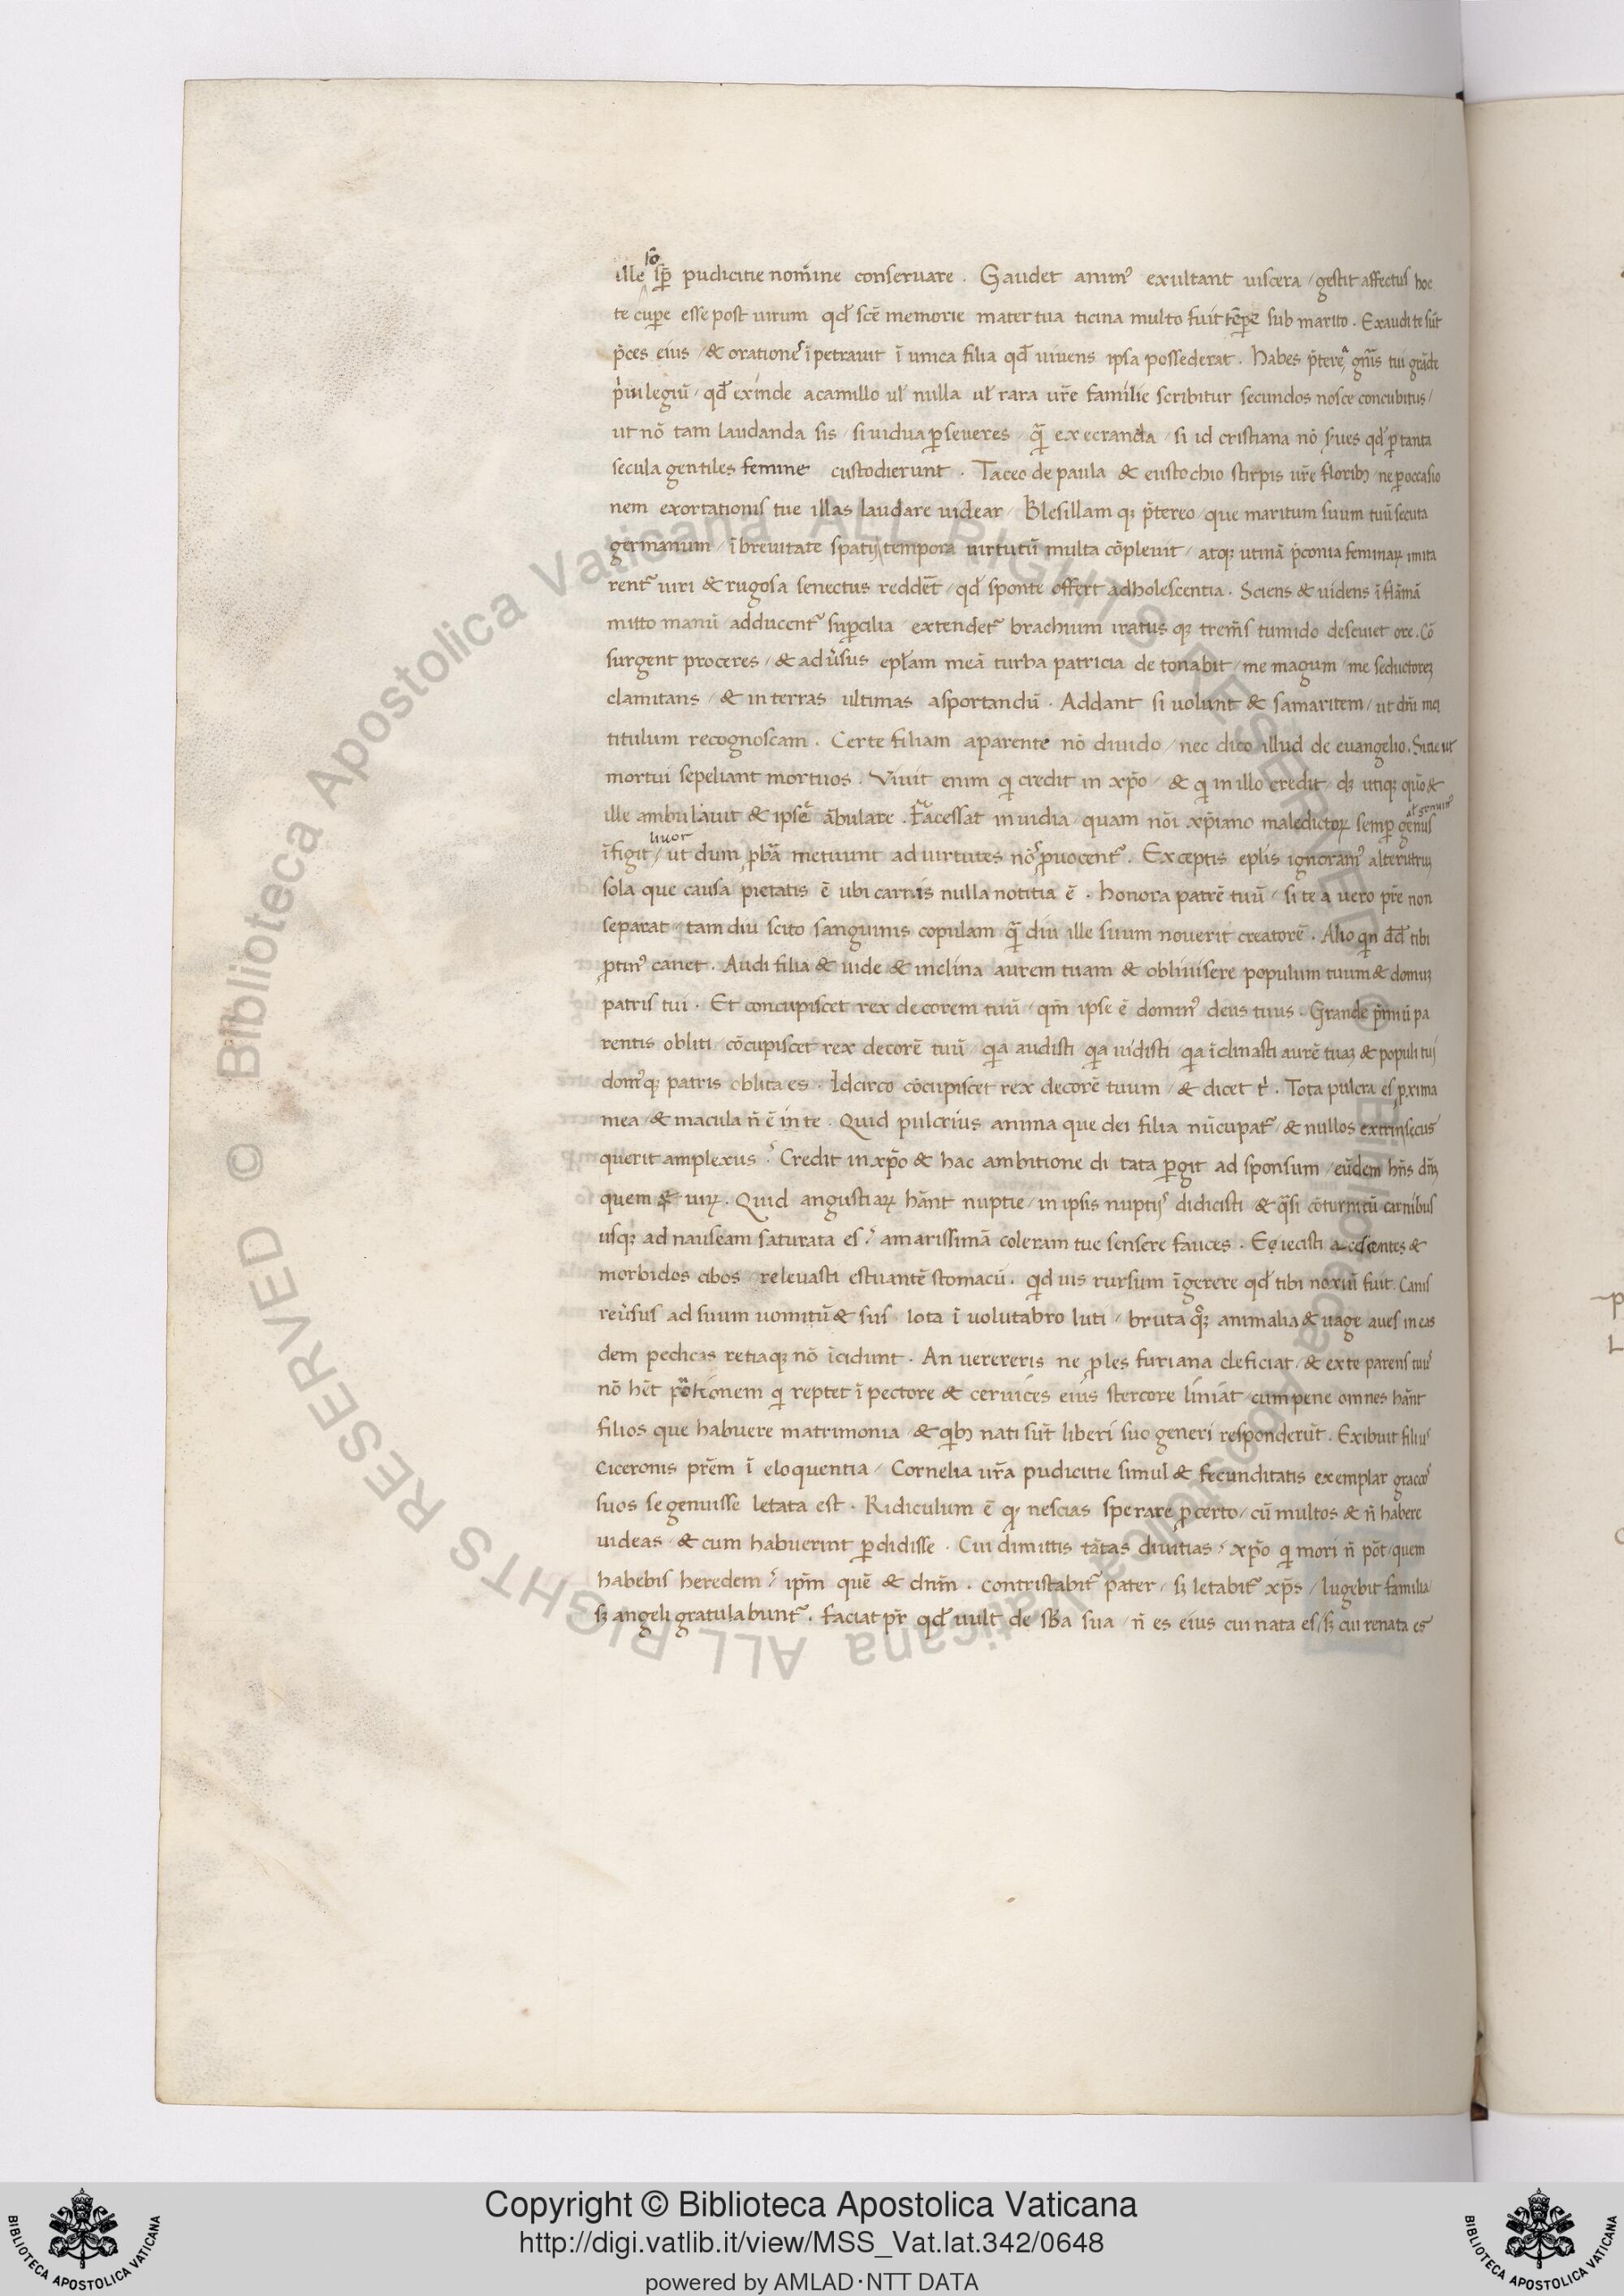 ille sp̄ pudicitie nomine conseruare . Gaudet animꝰ exultant uiscera / gestit affectus hoc
te cup̱e esse post uirum qd̄ scē memorie mater tua ticina multo fuit tēpe sub marito . Exaudite sūt
p̄ces eius / & orationeʳ īpetrauit ī unica filia qd̄ uiuens ipsa possederat . habes p̄tereᵃ gn̄is tui grāde
pⁱuilegiū / qd̄ exinde a camillo ul̄ nulla ul̄ rara ur̄e familie scribitur secundos nosce concubitus /
ut nō tam laudanda sis / si uidua p̱seueres / q̄ execranda / si id cristiana nō s̄ues qd̄ p̱ tanta
secula gentiles femine custodierunt . Taceo de paula & eustochio stirpis ur̄e floribꝫ / ne p̱ occasio
nem exortationis tue illas laudare uidear / Blesillam qꝫ p̄tereo / que maritum suum tuū secuta
germanum / ī breuitate spatij tempora uirtutū multa cōpleuit / atqꝫ utinā p̄conia feminaꝝ imita
rentᷣ uiri & rugosa senectus reddēt / qd̄ sponte offert adholescentia . Sciens & uidens ī flāmā
mitto manū / adducentᷣ sup̱cilia / extendetᷣ brachium iratus qꝫ trem̄s tumido deseuiet ore . Cō
surgent proceres / & adu̾sus epl̄am meā turba patricia detonabit / me magum / me seductoreꝫ
clamitans / & in terras ultimas asportandū . Addant si uolunt & samaritem / ut dn̄i mei
titulum recognoscam . Certe filiam a parente nō diuido / nec dico illud de euangelio . Sine ut
mortui sepeliant mortuos . Viuit enim qi credit in xp̄o / & qi in illo credit / dꝫ utiqꝫ quō &
ille ambulauit & ipse ābulare . Facessat inuidia / quam nōi xp̄iano maledictoꝝ semp̱ genus
liuor
īfigit / ut dum p̱bā metuunt ad uirtutes nō ꝓuocentᷣ . Exceptis epl̄is ignoramꝰ alterutruꝫ
sola que causa pietatis ē ubi carnis nulla notitia ē . honora patrē tuū / si te a uero pr̄e non
separat / tam diu scito sanguinis copulam q̄ diu ille suum nouerit creatorē . Alioqin dd̄ tibi
ꝓtinꝰ canet . Audi filia & uide & inclina aurem tuam & obliuisere populum tuum & domuꝫ
patris tui . Et concupiscet rex decorem tuū / qm̄ ipse ē dominꝰ deus tuus . Grande p̄miū pa
rentis obliti / cōcupiscet rex decorē tuū / qia audisti qia uidisti / qia īclinasti aurē tuaꝫ & populi tui
domꝰqꝫ patris oblita es . Idcirco cōcupiscet rex decorē tuum / & dicet tⁱ . Tota pulcra es ꝓxima
mea / & macula n̄ ē in te . Quid pulcrius anima que dei filia nūcupatᷣ / & nullos extrinsecus
querit amplexus ? Credit in xp̄o & hac ambitione ditata p̱git ad sponsum / eūdem hn̄s dn̄ꝫ
quem & uiꝝ . Quid angustiaꝝ hānt nuptie / in ipsis nuptijs didicisti & q̄si cōturnicū carnibus
usqꝫ ad nauseam saturata es ? amarissimā coleram tue sensere fauces . Eiecisti acescentes &
morbidos cibos / releuasti estuantē stomacū . qid uis rursum īgerere qd̄ tibi noxiū fuit . Canis
reu̾sus ad suum uomitū & sus lota ī uolutabro luti / bruta qoqꝫ animalia & uage aues in eas
dem pedicas retiaqꝫ nō īcidunt . An uerereris ne ꝓles furiana deficiat / & ex te parens tuus
nō hēt qi reptet ī pectore & ceruices eius stercore liniāt / cum pene omnes hānt
filios que habuere matrimonia & qibꝫ nati sūt liberi suo generi responderūt . Exibuit filius
Ciceronis pr̄em ī eloquentia / Cornelia ur̄a pudicitie simul & fecunditatis exemplar graccos
suos se genuisse letata est . Ridiculum ē qꝫ nescias sperare ꝓ certo / cū multos & n̄ habere
uideas & cum habuerint p̱didisse . Cui dimittis tātas diuitias ? xp̄o qi mori n̄ pōt / quem
habebis heredem ? ip̄m quē & dnm̄ . Contristabitᷣ pater / sꝫ letabitᷣ xp̄s / lugebit familia
sꝫ angeli gratulabuntᷣ . Faciat pr̄ qd̄ uult de sb̄a sua / n̄ es eius cui nata es / sꝫ cui renata es
Copyright © Biblioteca Apostolica Vaticana
http://digi.vatlib.it/view/MSS_Vat.lat.342/0648
powered by AMLAD·NTT DATA
BIBLIOTECA APOSTOLICA VATICANA
BIBLIOTECA APOSTOLICA VATICANA
© Biblioteca Apostolica Vaticana ALL RIGHTS RESERVED
© Biblioteca Apostolica Vaticana ALL RIGHTS RESERVED